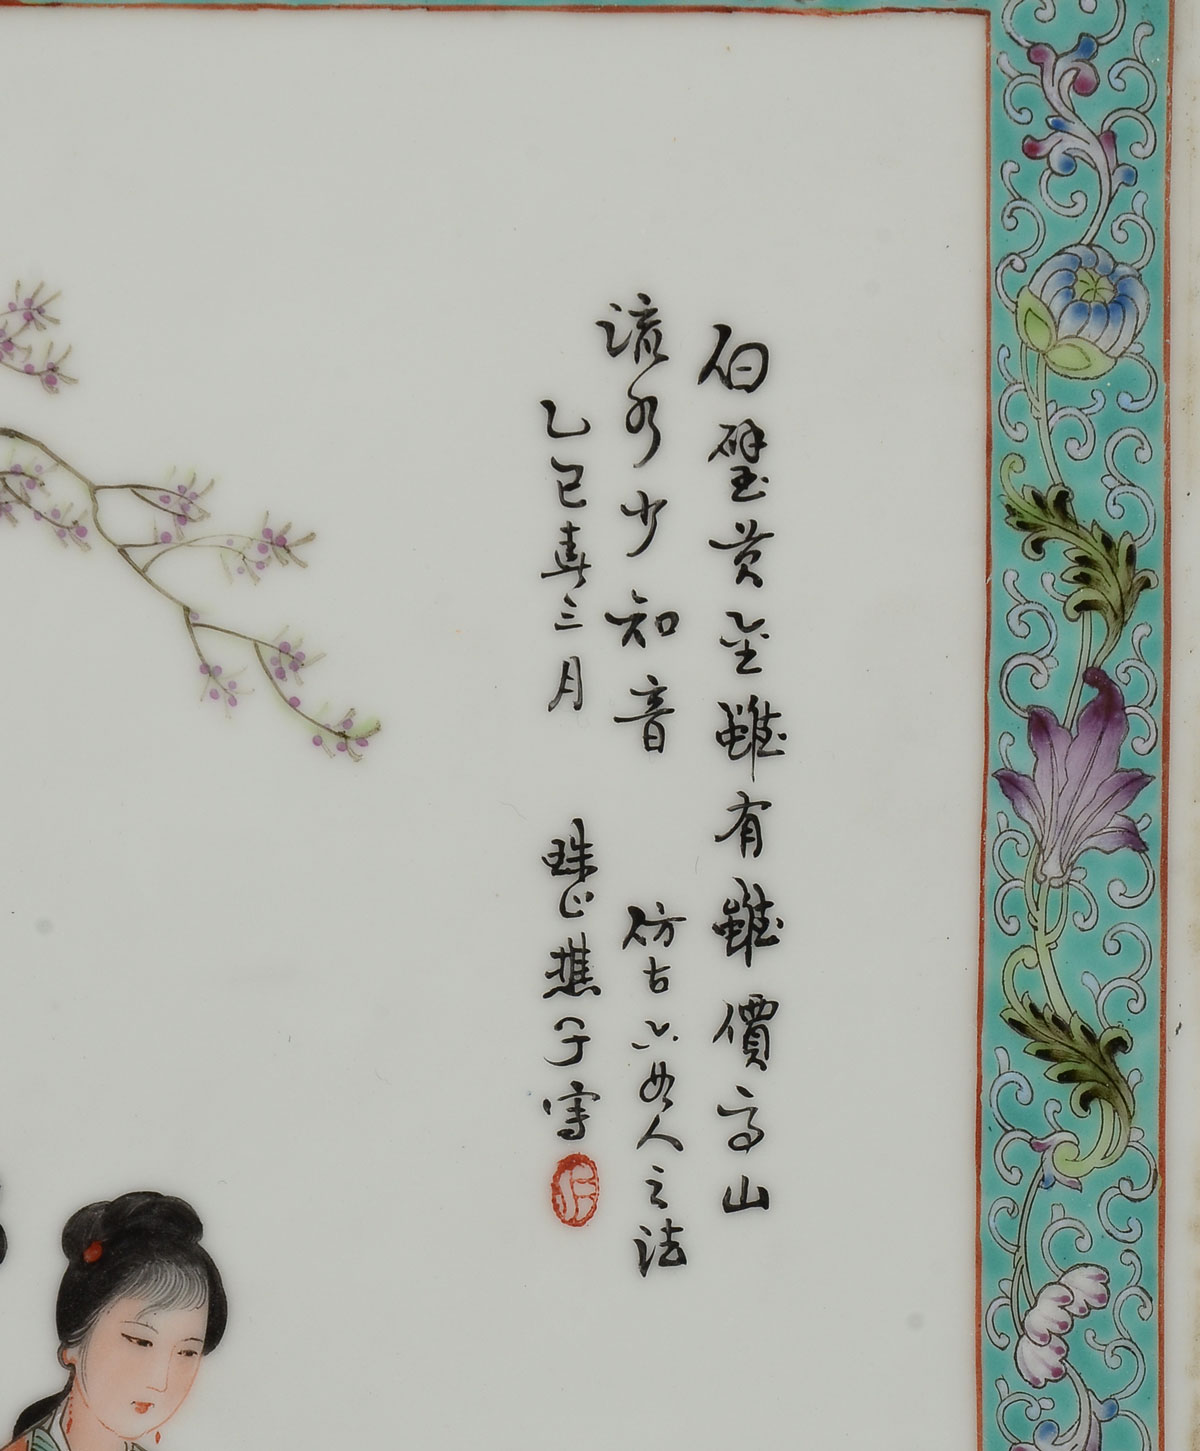 白璧黄金雖有雖價高山
流水少知音 仿古六如人之法
乙巳春三月 珠山樵子寫
仁